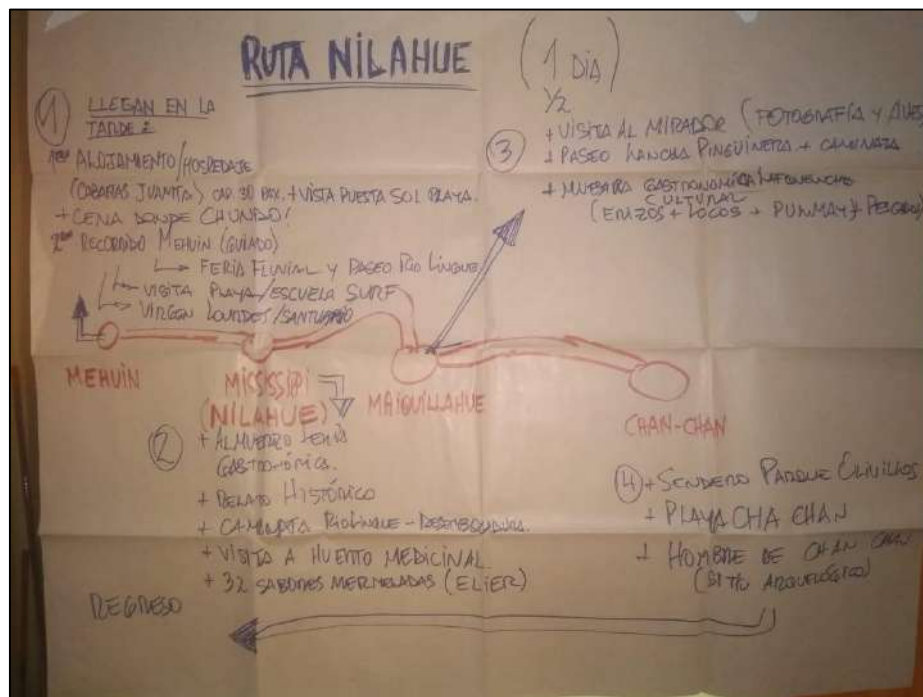 RUTA NILAHUE
(1 DIA)
1/2
1 LLEGAN EN LA
TARDE:
1ero ALOJAMIENTO/HOSPEDAJE
(CABAÑAS JUANITA) CAP. 30 PAX. + VISTA PUESTA SOL PLAYA.
+ CENA DONDE CHUNDO!
2do RECORRIDO MEHUIN (GUIADO)
→ FERIA FLUVIAL Y PASEO RIO LINGUE
→ VISITA PLAYA/ESCUELA SURF
→ VIRGEN LOURDES/SANTUARIO
3
+ VISITA AL MIRADOR (FOTOGRAFÍA Y AVES
+ PASEO LANCHA PINGUINERA + CAMINATA
+ MUESTRA GASTRONÓMICA
CULTURAL
(ERIZOS + LOCOS + PULMAY + PESCADO
MEHUIN
MISSISSIPI
(NILAHUE)
MAIQUILLAHUE
CHAN-CHAN
2 + ALMUERZO
GASTRONÓMICA.
+ RELATO HISTÓRICO
+ CAMINATA RIO LINGUE - DESEMBOCADURA.
+ VISITA A HUERTO MEDICINAL.
+ 32 SABORES MERMELADAS (ELIER)
4 + SENDERO PARQUE OLIVILLOS
+ PLAYA CHA CHAN
+ HOMBRE DE CHAN CHAN
(SITIO ARQUEOLÓGICO)
REGRESO